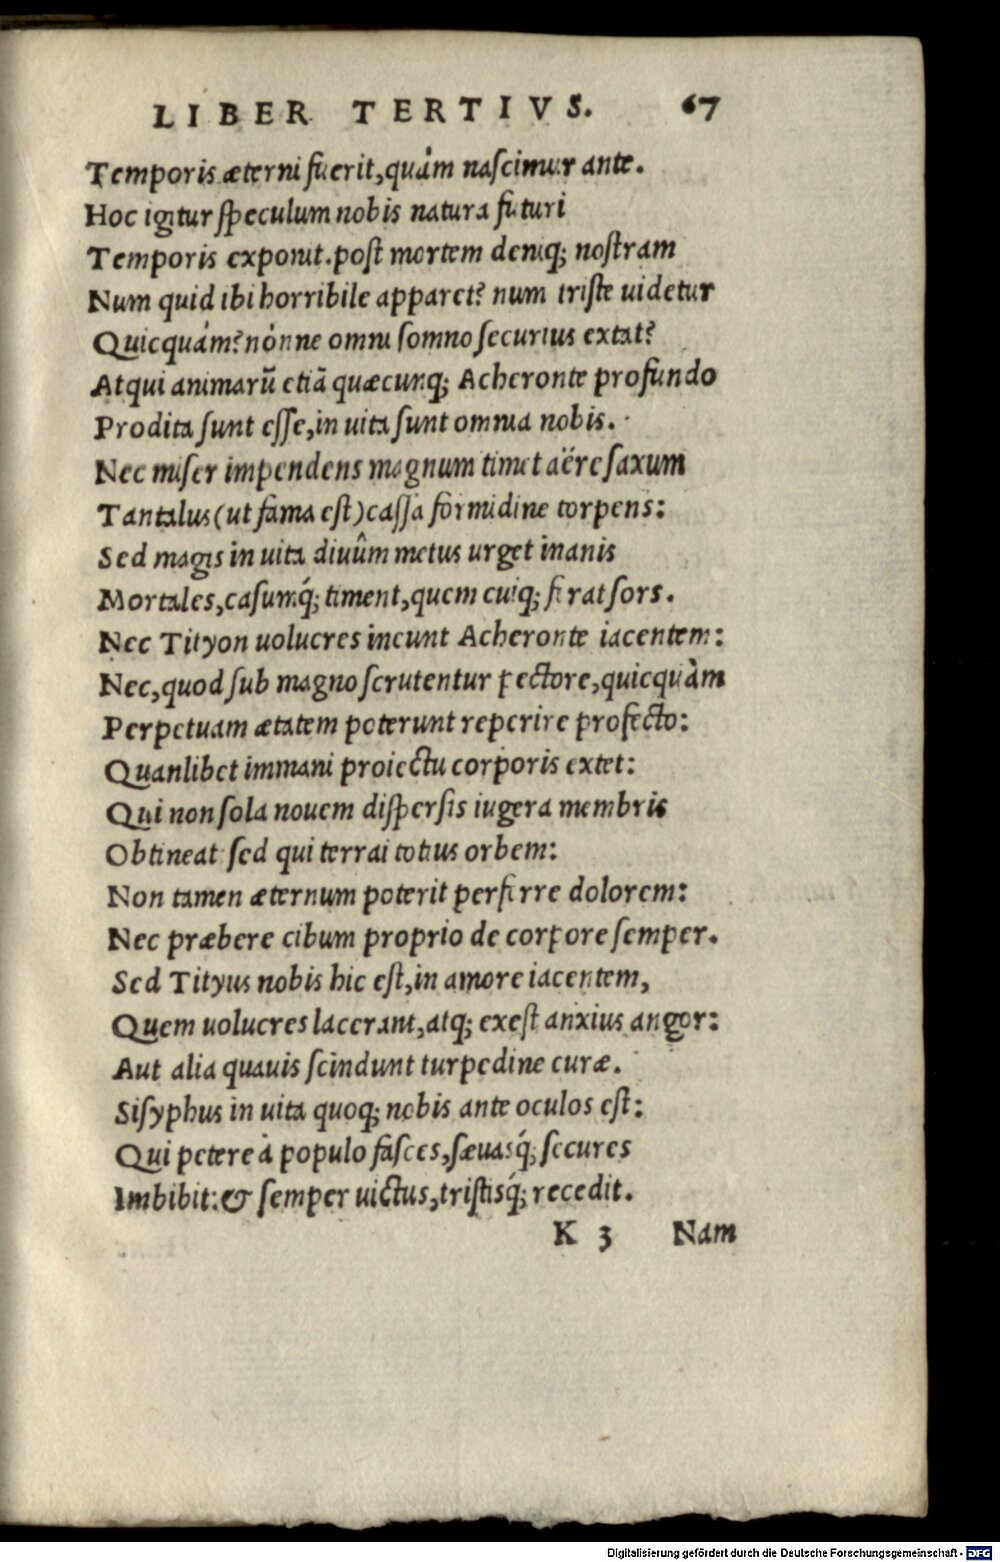 LIBER TERTIVS. 67
Temporis æterni fuerit, quàm nascimur ante.
Hoc igitur speculum nobis natura futuri
Temporis exponit. post mortem deniq; nostram
Num quid ibi horribile apparet? num triste uidetur
Quicquám? nónne omni somno securius extat?
Atqui animarũ etiã quæcunq; Acheronte profundo
Prodita sunt esse, in uita sunt omnia nobis.
Nec miser impendens magnum timet aëre saxum
Tantalus (ut fama est) cassa formidine torpens:
Sed magis in uita diuûm metus urget inanis
Mortales, casumq́; timent, quem cuiq; ferat sors.
Nec Tityon uolucres ineunt Acheronte iacentem:
Nec, quod sub magno scrutentur pectore, quicquàm
Perpetuam ætatem poterunt reperire profecto:
Quanlibet immani proiectu corporis extet:
Qui non sola nouem dispersis iugera membris
Obtineat sed qui terrai totius orbem:
Non tamen æternum poterit perferre dolorem:
Nec præbere cibum proprio de corpore semper.
Sed Tityus nobis hic est, in amore iacentem,
Quem uolucres lacerant, atq; exest anxius angor:
Aut alia quauis scindunt turpedine curæ.
Sisyphus in uita quoq; nobis ante oculos est:
Qui petere à populo fasces, sæuasq́; secures
Imbibit: & semper uictus, tristisq́; recedit.
K 3 Nam
Digitalisierung gefördert durch die Deutsche Forschungsgemeinschaft - DFG